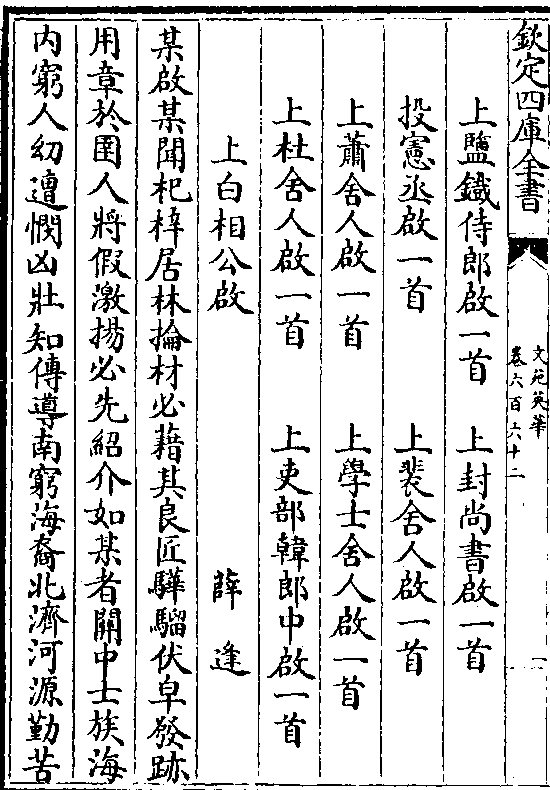 欽定四庫全書
文苑英華
卷六百六十二
一
上鹽鐵侍郎啟一首 上封尚書啟一首
投憲丞啟一首 上裴舍人啟一首
上蕭舍人啟一首 上學士舍人啟一首
上杜舍人啟一首 上吏部韓郎中啟一首
上白相公啟 薛逢
某啟某聞杞梓居林掄材必藉其良匠驊騮伏皁發跡
用章於圉人將假激揚必先紹介如某者關中士族海
内窮人幼遭憫凶壯知傳導南窮海裔北濟河源勤苦